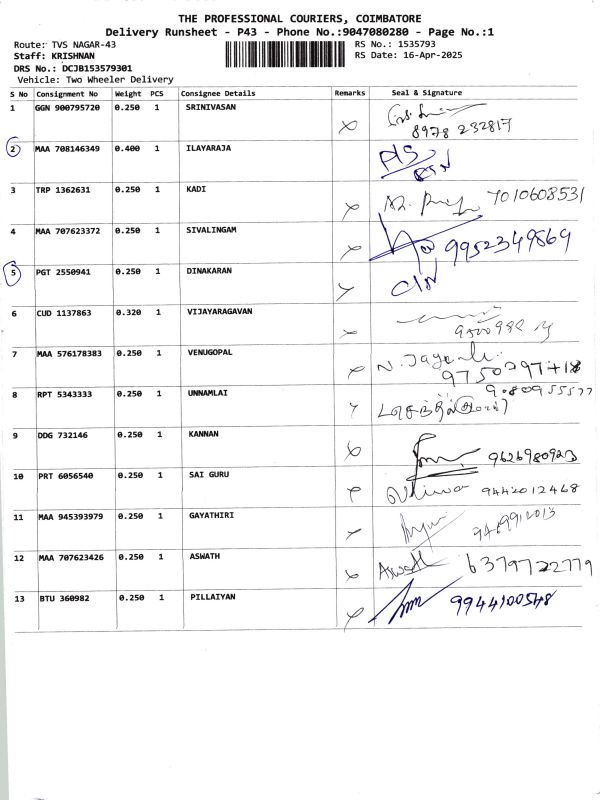 THE PROFESSIONAL COURIERS, COIMBATORE
Delivery Runsheet - P43 - Phone No.:9047080280 - Page No.:1
Route: TVS NAGAR-43
RS No.: 1535793
Staff: KRISHNAN
RS Date: 16-Apr-2025
DRS No.: DCJB153579301
Vehicle: Two Wheeler Delivery
S No Consignment No Weight PCS Consignee Details Remarks Seal & Signature
1 GGN 900795720 0.250 1 SRINIVASAN
8978 232817
2 MAA 708146349 0.400 1 ILAYARAJA
3 TRP 1362631 0.250 1 KADI 7010608531
4 MAA 707623372 0.250 1 SIVALINGAM 9952349869
5 PGT 2550941 0.250 1 DINAKARAN
6 CUD 1137863 0.320 1 VIJAYARAGAVAN
7 MAA 576178383 0.250 1 VENUGOPAL
8 RPT 5343333 0.250 1 UNNAMLAI
9 DDG 732146 0.250 1 KANNAN
10 PRT 6056540 0.250 1 SAI GURU 9442012468
11 MAA 945393979 0.250 1 GAYATHIRI
12 MAA 707623426 0.250 1 ASWATH Aswath 6379722779
13 BTU 360982 0.250 1 PILLAIYAN 9944100548